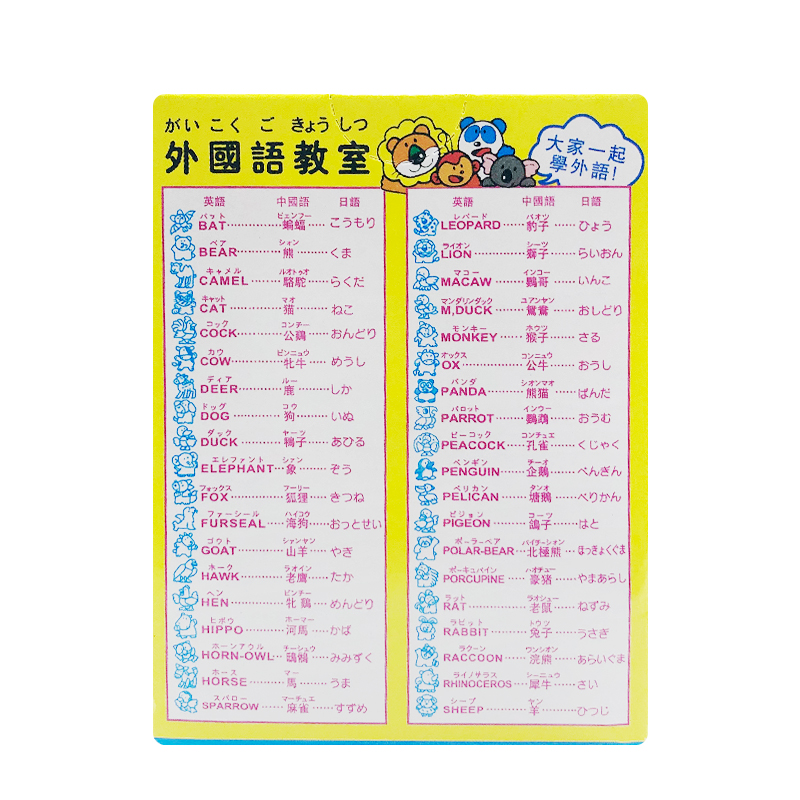 がい こく ご きょう しつ
外國語教室
大家一起
學外語!
英語 中國語 日語
バット ビェンフー
BAT 蝙蝠 こうもり
ベア ション
BEAR 熊 くま
キャメル ルオトゥオ
CAMEL 駱駝 らくだ
キャット マオ
CAT 猫 ねこ
コック コンチー
COCK 公鷄 おんどり
カウ ピンニュウ
COW 牝牛 めうし
ディア ルー
DEER 鹿 しか
ドッグ コウ
DOG 狗 いぬ
ダック ヤーツ
DUCK 鴨子 あひる
エレファント シァン
ELEPHANT 象 ぞう
フォックス フーリー
FOX 狐狸 きつね
ファーシール ハイコウ
FURSEAL 海狗 おっとせい
ゴウト シァンヤン
GOAT 山羊 やぎ
ホーク ラオイン
HAWK 老鷹 たか
ヘン ピンチー
HEN 牝鷄 めんどり
ヒポウ ホーマー
HIPPO 河馬 かば
ホーンアウル チーシュウ
HORN-OWL 鴟鵂 みみずく
ホース マー
HORSE 馬 うま
スパロー マーチュエ
SPARROW 麻雀 すずめ
英語 中國語 日語
レパード パオツ
LEOPARD 豹子 ひょう
ライオン シーツ
LION 獅子 らいおん
マコー インコー
MACAW 鸚哥 いんこ
マンダリンダック ユアンヤン
M,DUCK 鴛鴦 おしどり
モンキー ホウツ
MONKEY 猴子 さる
オックス コンニュウ
OX 公牛 おうし
パンダ シオンマオ
PANDA 熊猫 ぱんだ
パロット インウー
PARROT 鸚鵡 おうむ
ピーコック コンチュエ
PEACOCK 孔雀 くじゃく
ペンギン チーオ
PENGUIN 企鵝 ぺんぎん
ペリカン タンオ
PELICAN 塘鵝 ぺりかん
ピジョン コーツ
PIGEON 鴿子 はと
ポーラーベア パイチーシオン
POLAR-BEAR 北極熊 ほっきょくぐま
ポーキュパイン ハオチュー
PORCUPINE 豪猪 やまあらし
ラット ラオシュー
RAT 老鼠 ねずみ
ラビット トウツ
RABBIT 兔子 うさぎ
ラクーン ワンシオン
RACCOON 浣熊 あらいぐま
ライノサラス シーニュウ
RHINOCEROS 犀牛 さい
シープ ヤン
SHEEP 羊 ひつじ